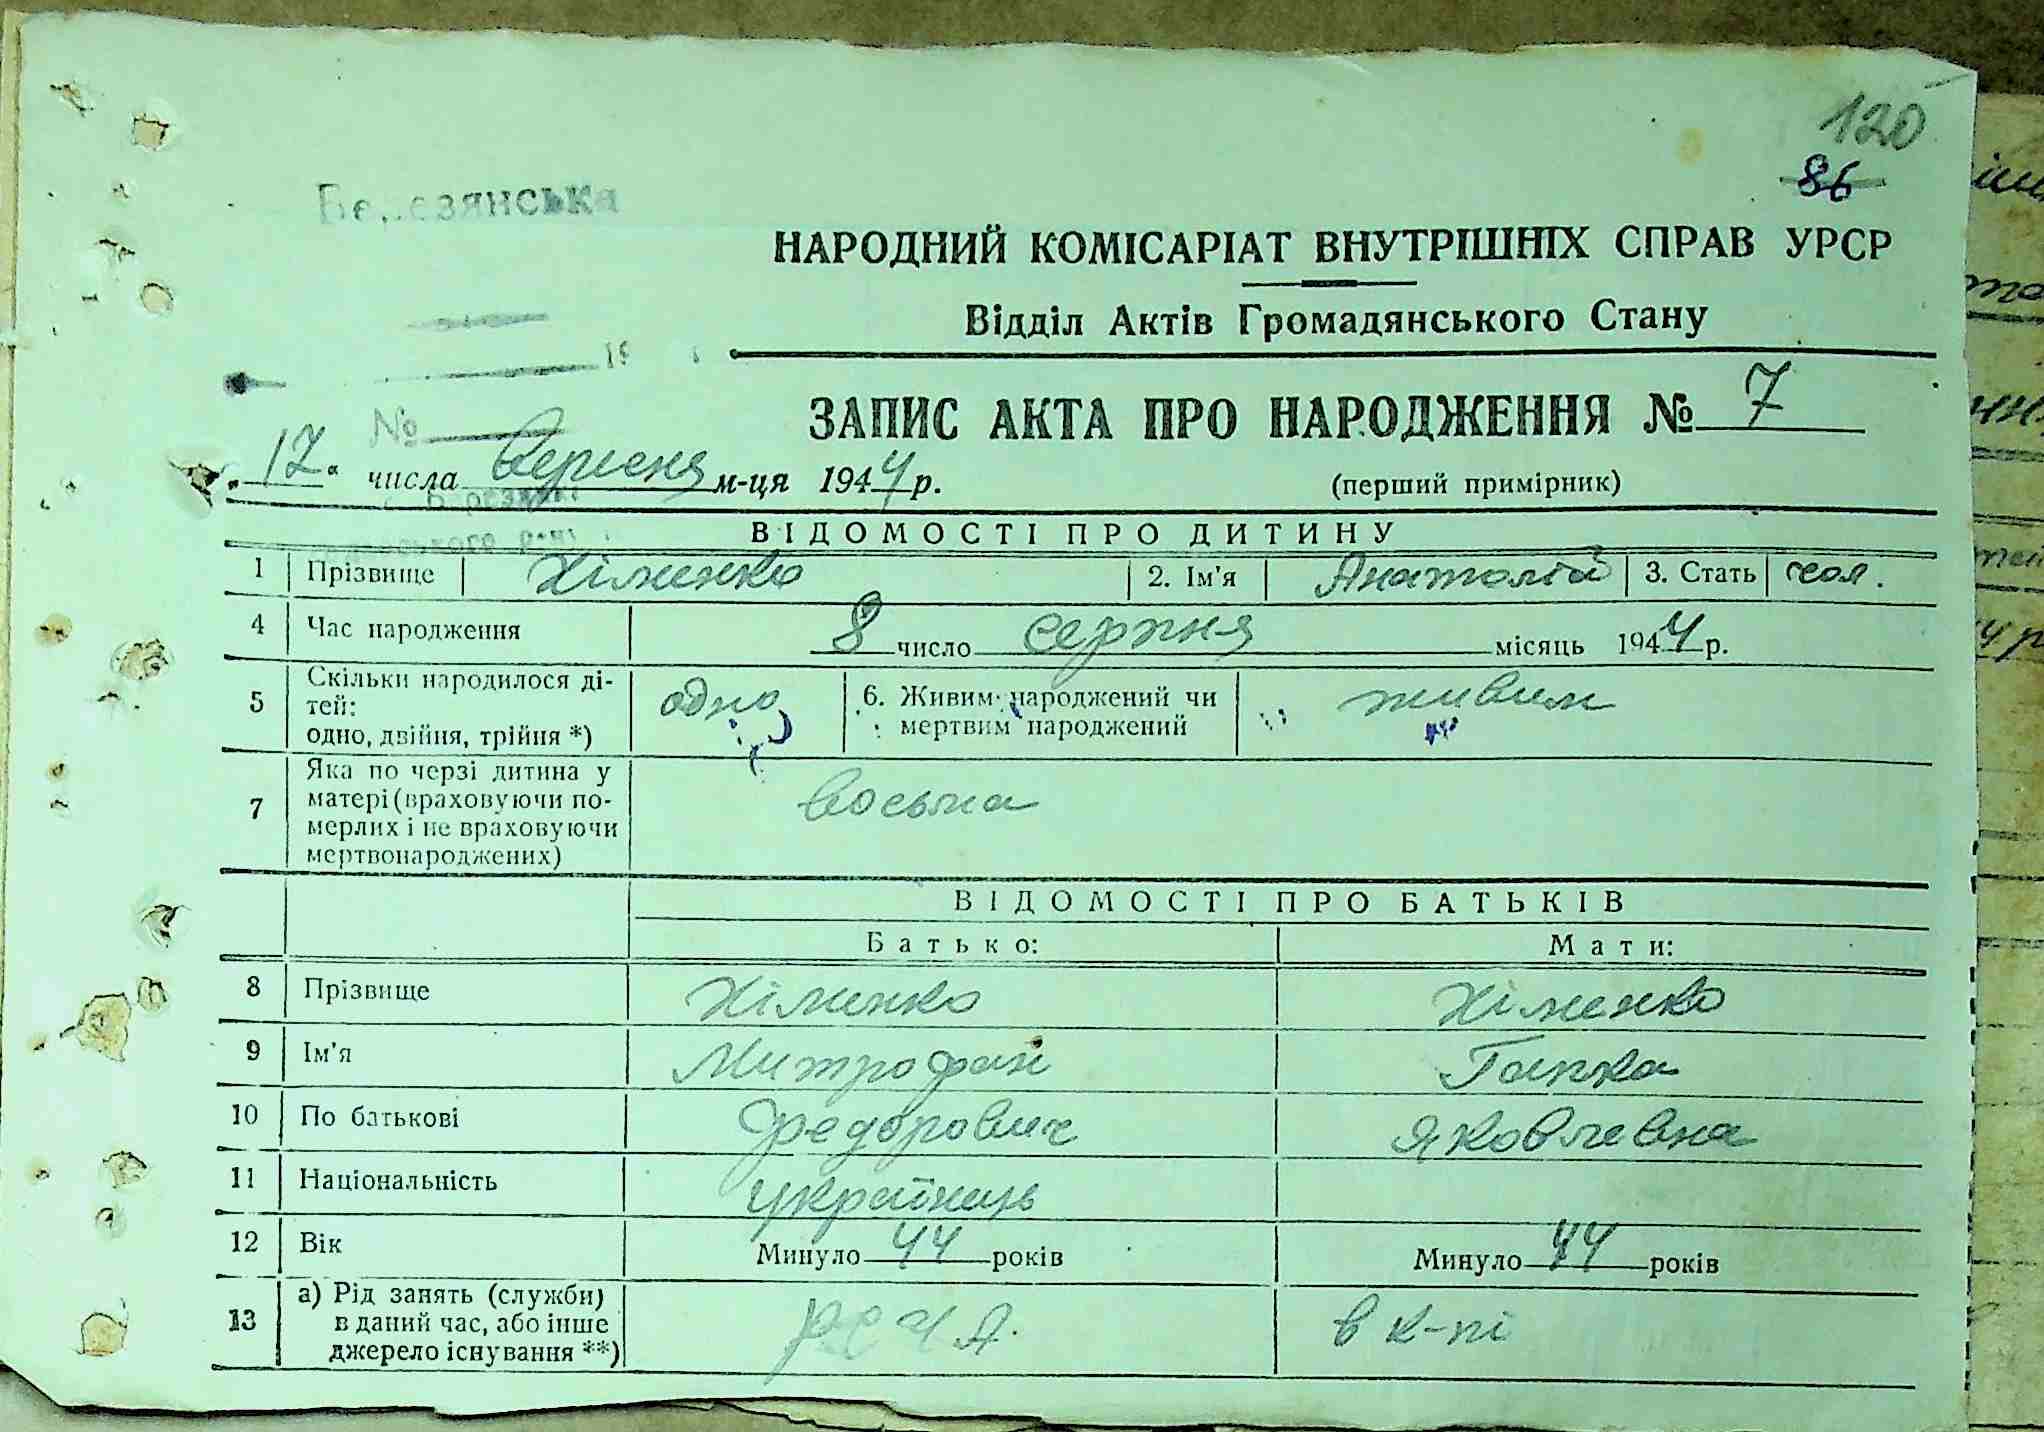 120
86
Березянська
НАРОДНИЙ КОМІСАРІАТ ВНУТРІШНІХ СПРАВ УРСР
Відділ Актів Громадянського Стану
19
№
ЗАПИС АКТА ПРО НАРОДЖЕННЯ № 7
„17“ числа Вересня м-ця 1944 р.
(перший примірник)
ВІДОМОСТІ ПРО ДИТИНУ
1 Прізвище Хіменко 2. Ім'я Анатолій 3. Стать чол.
4 Час народження 8 число серпня місяць 1944 р.
5 Скільки народилося ді-
тей:
одно, двійня, трійня *) одно 6. Живим народжений чи
мертвим народжений живим
7 Яка по черзі дитина у
матері (враховуючи по-
мерлих і не враховуючи
мертвонароджених) восьма
ВІДОМОСТІ ПРО БАТЬКІВ
Батько: Мати:
8 Прізвище Хіменко Хіменко
9 Ім'я Митрофан Гапка
10 По батькові Федорович Яковлевна
11 Національність українець
12 Вік Минуло 44 років Минуло 44 років
13 а) Рід занять (служби)
в даний час, або інше
джерело існування **) РСЧА. в к-пі